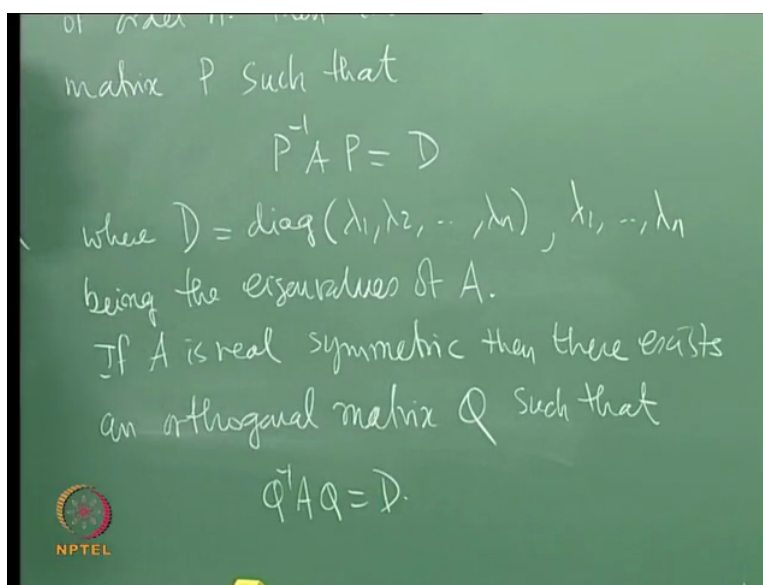 of order n. Then
matrix P such that
P⁻¹AP = D
where D = diag(λ1, λ2, .., λn), λ1, .., λn
being the eigenvalues of A.
If A is real symmetric then there exists
an orthogonal matrix Q such that
Q⁻¹AQ = D.
NPTEL